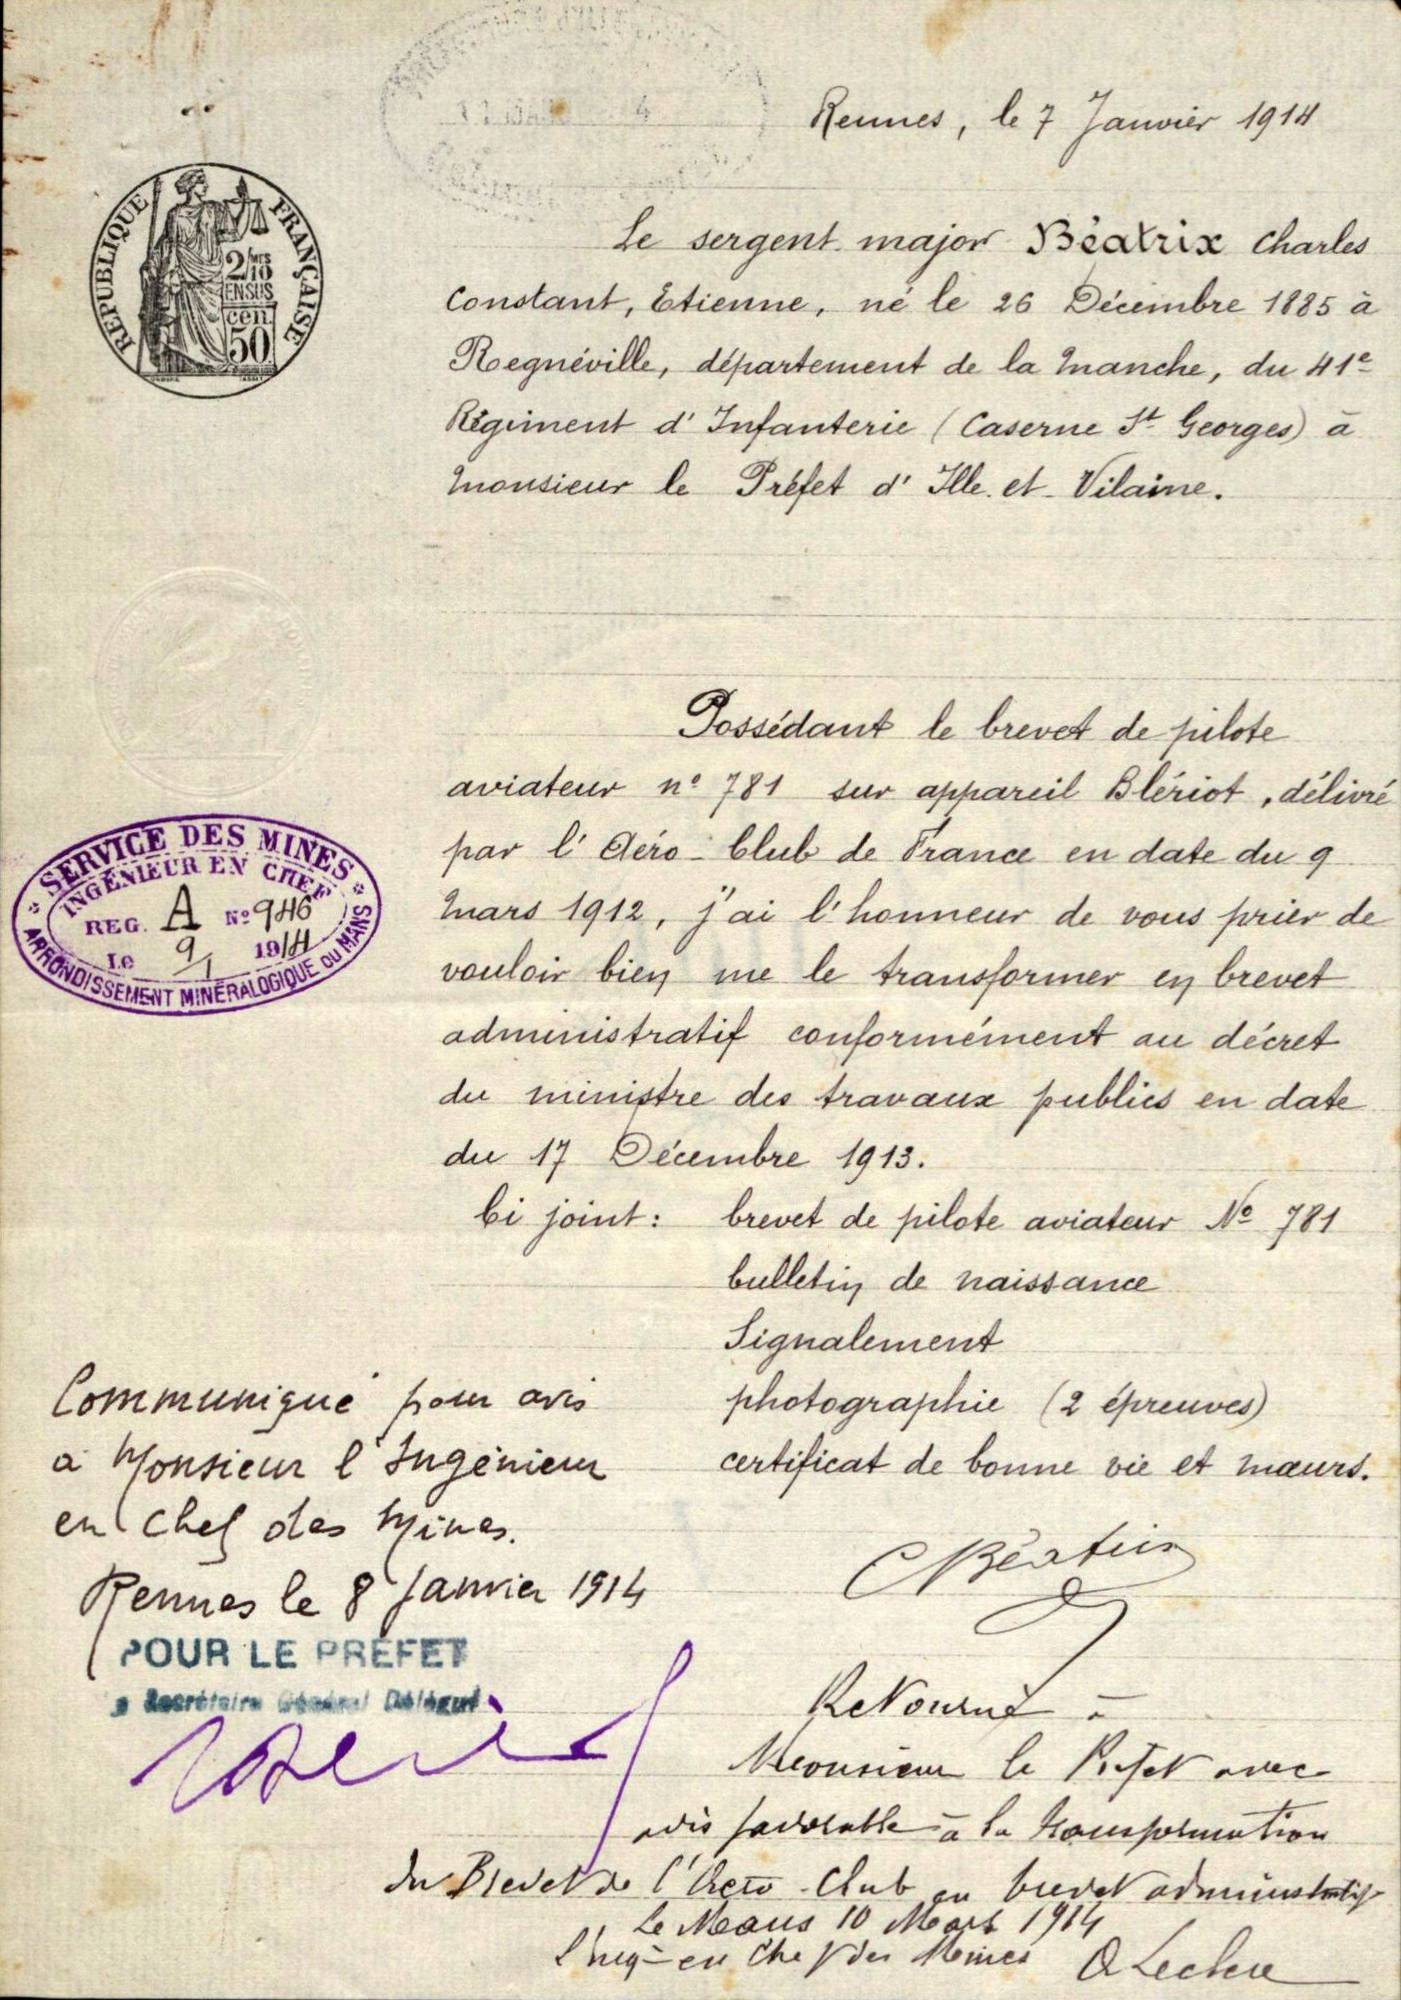 Rennes, le 7 Janvier 1914
RÉPUBLIQUE FRANÇAISE
2/10
EN SUS
cen.
50
Le sergent-major Béatrix Charles
Constant, Etienne, né le 26 Décembre 1885 à
Regnéville, département de la Manche, du 41e
Régiment d'Infanterie (Caserne St Georges) à
Monsieur le Préfet d'Ille-et-Vilaine.
Possédant le brevet de pilote
aviateur n° 781 sur appareil Blériot, délivré
par l'Aéro-Club de France en date du 9
Mars 1912, j'ai l'honneur de vous prier de
vouloir bien me le transformer en brevet
administratif conformément au décret
du ministre des travaux publics en date
du 17 Décembre 1913.
SERVICE DES MINES
INGÉNIEUR EN CHEF
REG. A N° 946
Le 9/1 1914
ARRONDISSEMENT MINÉRALOGIQUE DU MANS
Ci joint : brevet de pilote aviateur N° 781
bulletin de naissance
Signalement
photographie (2 épreuves)
certificat de bonne vie et mœurs.
CBéatrix
Communiqué pour avis
à Monsieur l'Ingénieur
en Chef des Mines.
Rennes le 8 Janvier 1914
POUR LE PRÉFET
Secrétaire Général Délégué
Retourné à
Monsieur le Préfet avec
avis favorable à la transformation
du Brevet de l'Aéro-Club en brevet administratif
Le Mans 10 Mars 1914
L'Ingr en Chef des Mines